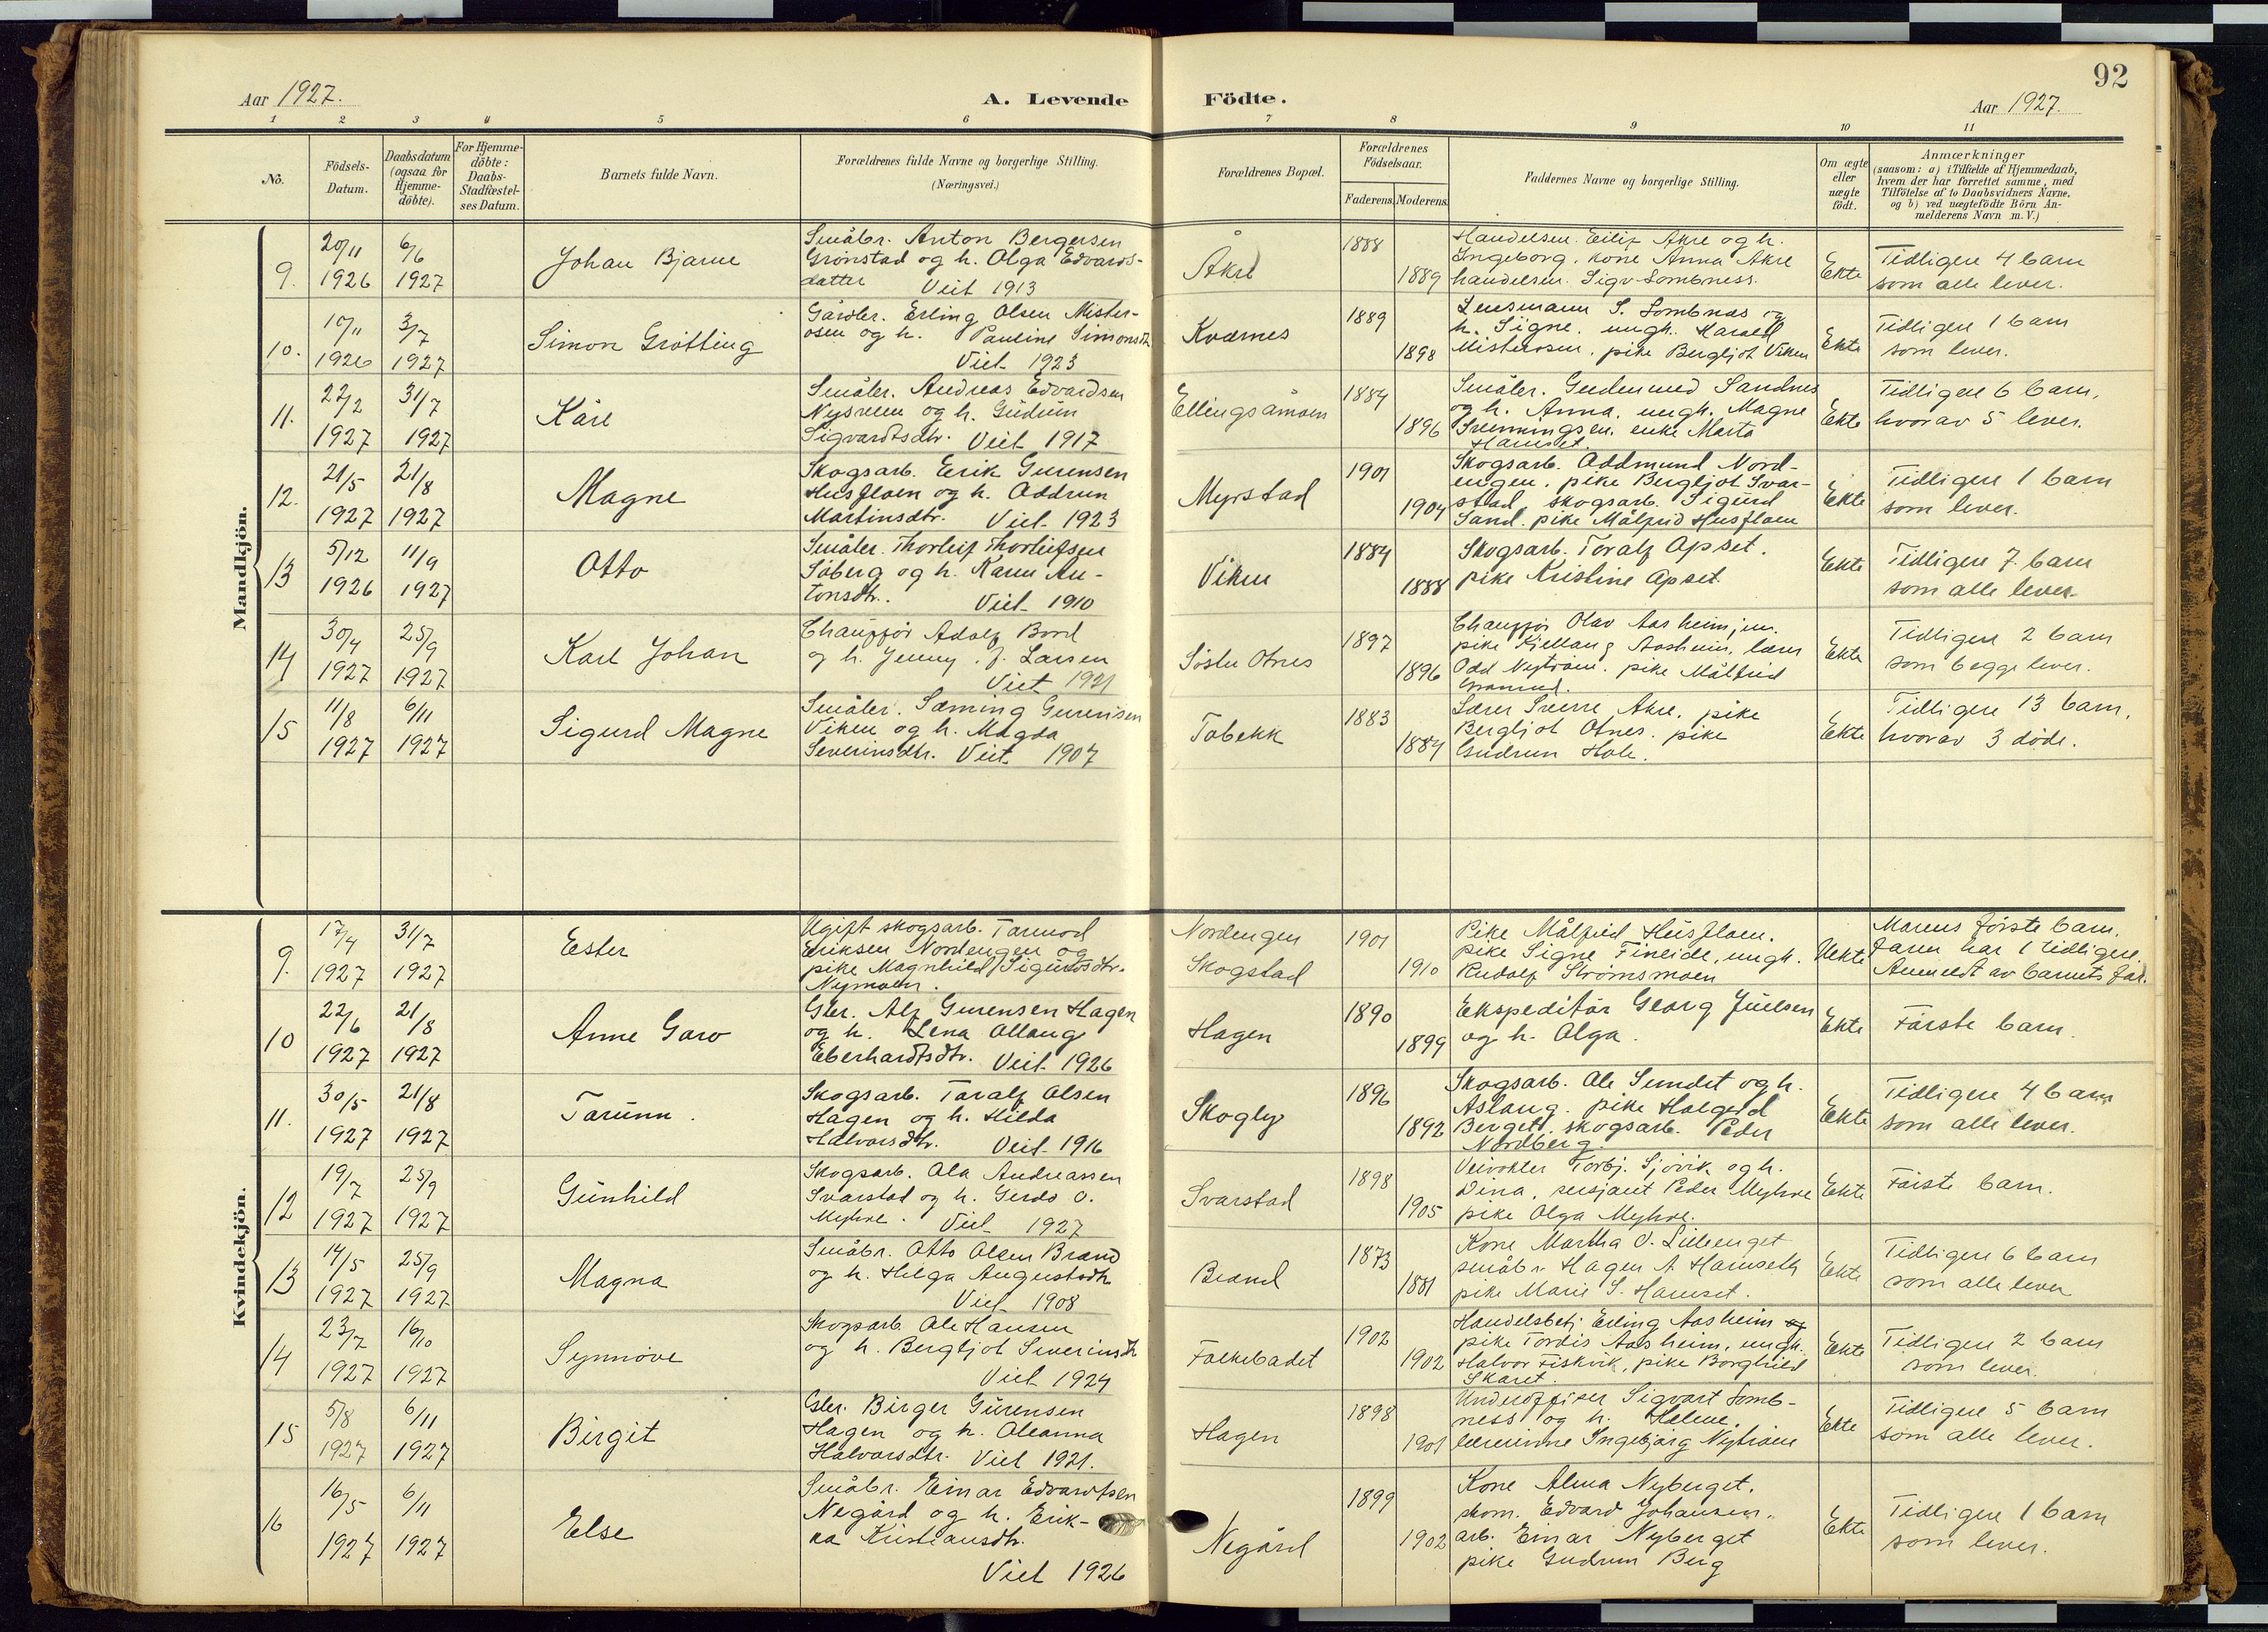 92
Aar 1927.
A. Levende Födte.
Aar 1927.
1 2 3 4 5 6 7 8 9 10 11
No.
Födsels-Datum.
Daabsdatum (ogsaa for Hjemme-döbte).
For Hjemme-döbte: Daabs-Stadfæstel-ses Datum.
Barnets fulde Navn.
Forældrenes fulde Navne og borgerlige Stilling.
(Næringsvei.)
Forældrenes Bopæl.
Forældrenes Födselsaar.
Faderens. Moderens.
Faddernes Navne og borgerlige Stilling.
Om ægte eller uægte födt.
Anmærkninger
(saasom: a) i Tilfælde af Hjemmedaab,
hvem der har forrettet samme, med
Tilföielse af to Daabsvidners Navne.
og b) ved uægtefödte Börn An-
melderens Navn m. V.)
Mandkjön.
9. 20/11 1926 6/6 1927
Johan Bjarne
Småbr. Anton Bergersen
Grønstad og h. Olga Edvards-
datter Viet 1913
Åkre
1888 1889
Handelsm. Eilif Akre og h.
Ingeborg, kone Anna Akre
handelsm. Sigv. Lombness.
Ekte
Tidligere 4 barn
som alle lever.
10. 10/11 1926 3/7 1927
Simon Grøtting
Gårdbr. Erling Olsen Mister-
osen og h. Pauline Simonsdtr
Viet 1923
Kværnes
1889 1898
Lensmann S. Lombnæs og
h. Signe, ungk. Harald
Misterosen, pike Bergljot Viken
Ekte
Tidligere 1 barn
som lever.
11. 22/2 1927 31/7 1927
Kåre
Småbr. Andreas Edvardsen
Nysveen og h. Gudrun
Sigvardtsdtr. Viet 1917
Ellingsåmoen
1884 1896
Småbr. Gudmund Sandnes
og h. Anna, ungk. Magne
Svenningsen, enke Marta
Harnset.
Ekte
Tidligere 6 barn,
hvorav 5 lever.
12. 21/5 1927 21/8 1927
Magne
Skogsarb. Erik Gurensen
Husfloen og h. Oddrun
Martinsdtr. Viet 1923
Myrstad
1901 1904
Skogsarb. Oddmund Nord-
engen, pike Bergljot Svar-
stad, skogsarb. Sigurd
Sand, pike Målfrid Husfloen
Ekte
Tidligere 1 barn
som lever.
13 5/12 1926 11/9 1927
Otto
Småbr. Thorleif Thorleifsen
Søberg og h. Karen An-
tonsdtr. Viet 1910
Viken
1884 1888
Skogsarb. Toralf Opset.
pike Kristine Opset
Ekte
Tidligere 7 barn
som alle lever
14 30/4 1927 25/9 1927
Karl Johan
Chauffør Adolf Bord
og h. Jenny, f. Larsen
Viet 1921
Søstu Otnes
1897 1896
Chauffør Olav Aasheim jun.
pike Kjellaug Aasheim, lærer
Odd Nytrøen, pike Målfrid
Ekte
Tidligere 2 barn
som begge lever.
15 11/8 1927 6/11 1927
Sigurd Magne
Småbr. Sæming Gurensen
Viken og h. Magda
Severinsdtr. Viet 1907
Tobekk
1883 1884
Lærer Sverre Akre, pike
Bergljot Otnes, pike
Gudrun Hole.
Ekte
Tidligere 13 barn,
hvorav 3 døde.
Kvindekjön.
9. 17/4 1927 31/7 1927
Ester
Ugift skogsarb. Tormod
Eriksen Nordengen og
pike Magnhild Sigurdsdtr.
Nymoen.
Nordengen
Skogstad
1901 1910
Pike Målfrid Husfloen.
pike Signe Fineide, ungk.
Rudolf Strømsmoen
Uekte
Morens første barn.
Faren har 1 tidligere.
Anmeldt av barnets far.
10 22/6 1927 21/8 1927
Anne Garo
Gbr. Alf Gurensen Hagen
og h. Lena Ollaug
Eberhardtsdtr. Viet 1926
Hagen
1890 1899
Ekspeditør Georg Juelsen
og h. Olga.
Ekte
Første barn.
11. 30/5 1927 21/8 1927
Torunn.
Skogsarb. Toralf Olsen
Hagen og h. Hilda
Halvorsdtr. Viet 1916
Skogly
1896 1892
Skogsarb. Ole Sundet og h.
Aslaug, pike Holgerd
Berget, skogsarb. Peder
Nordberg.
Ekte
Tidligere 4 barn
som alle lever.
12 19/7 1927 25/9 1927
Gunhild
Skogsarb. Ola Andreassen
Svarstad og h. Gerda O.
Myhre. Viet 1927
Svarstad
1898 1905
Veivokter Torbj. Sjøvik og h.
Dina, sersjant Peder Myhre
pike Olga Myhre.
Ekte
Første barn.
13 14/5 1927 25/9 1927
Magna
Småbr. Otto Olsen Brænd
og h. Helga Augustsdtr
Viet 1908
Brænd
1873 1881
Kone Martha O. Lilleenget
småbr. Hagen A. Harnseth
pike Marie S. Harnset.
Ekte
Tidligere 6 barn
som alle lever
14 23/7 1927 16/10 1927
Synnøve
Skogsarb. Ole Hansen
og h. Bergljot Severinsdtr
Viet 1924
Folkebadet
1902 1902
Handelsbetj. Erling Aasheim og
pike Tordis Aasheim, ungk.
Halvor Fiskvik, pike Borghild
Skåret.
Ekte
Tidligere 2 barn
som lever.
15 5/8 1927 6/11 1927
Birgit
Gbr. Birger Gurensen
Hagen og h. Oleanna
Halvorsdtr. Viet 1921.
Hagen
1898 1901
Underoffiser Sigvart Lomb-
ness og h. Helene,
lærerinne Ingebjørg Nytrøen
Ekte
Tidligere 5 barn
som alle lever.
16 16/5 1927 6/11 1927
Else
Småbr. Einar Edvardsen
Negård og h. Erik-
ka Kristiansdtr.
Viet 1926
Negård
1899 1902
Kone Alma Nyberget,
skom. Edvard Johansen,
arb. Einar Nyberget
pike Gudrun Berg
Ekte
Tidligere 1 barn
som lever.